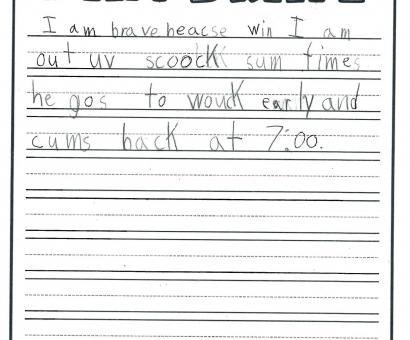 I am brave beacse win I am
out uv scoock sum times
he gos to wouck early and
cums back at 7:00.